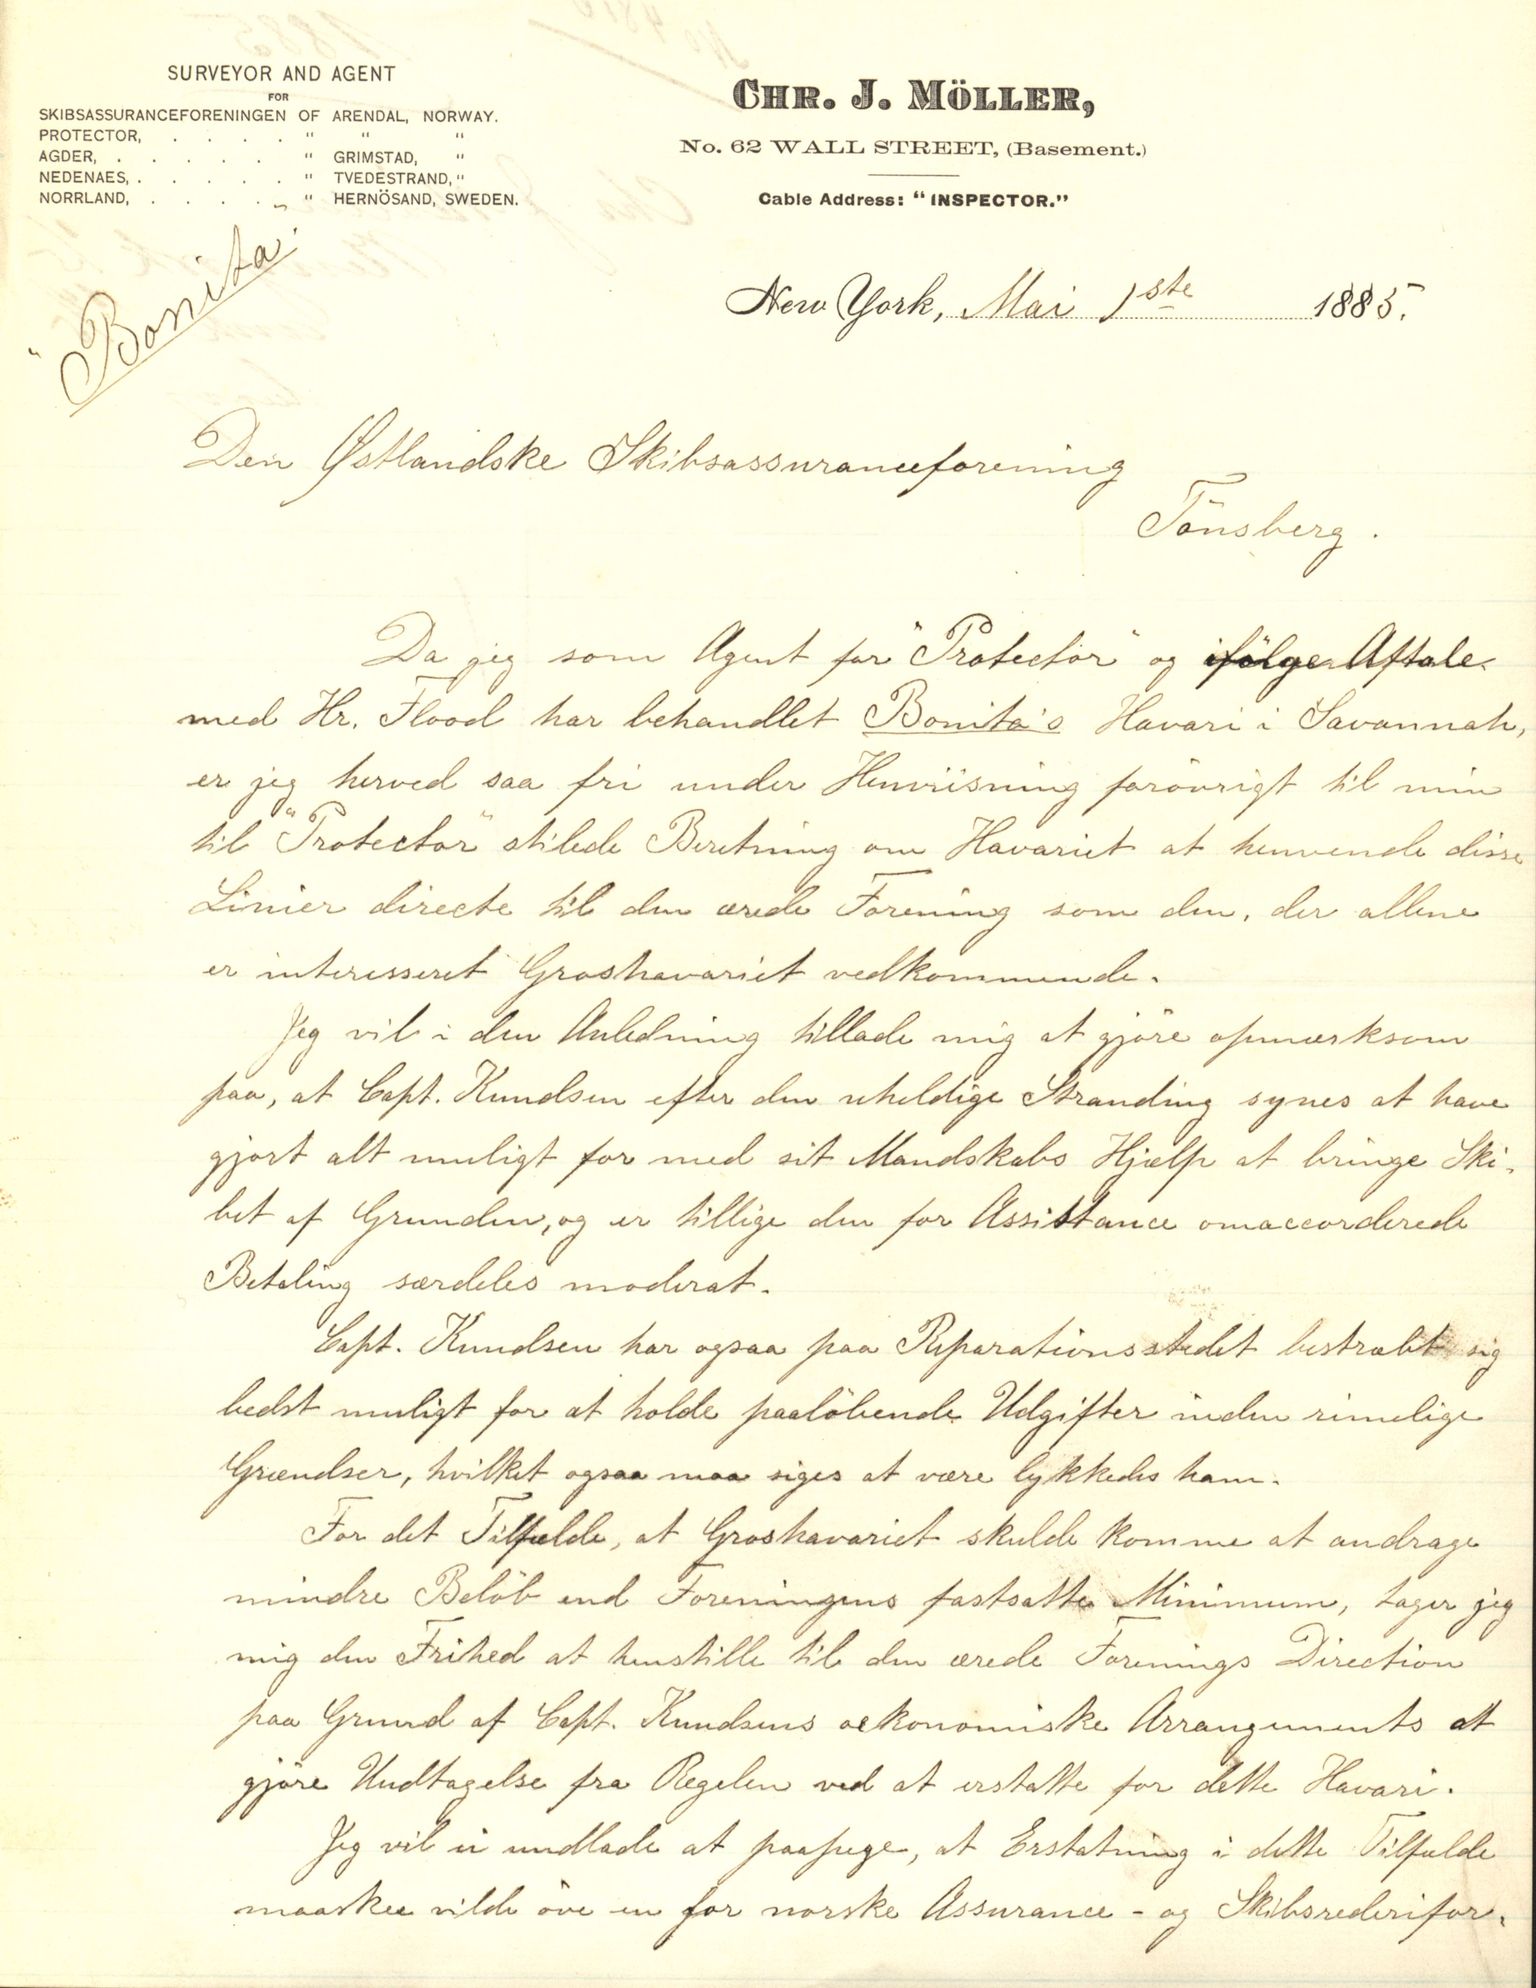 SURVEYOR AND AGENT
FOR
SKIBSASSURANCEFORENINGEN OF ARENDAL, NORWAY.
PROTECTOR, . . . . " " "
AGDER, . . . . . " GRIMSTAD, "
NEDENAES, . . . . . " TVEDESTRAND, "
NORRLAND, . . . . . " HERNÖSAND, SWEDEN.
CHR. J. MÖLLER,
No. 62 WALL STREET, (Basement.)
Cable Address: "INSPECTOR."
"Bonita"
New York, Mai 1ste 1885.
Den Østlandske Skibsassuranceforening
Tönsberg.
Da jeg som Agent for "Protector" og ifölge Aftale
med Hr. Flood har behandlet Bonita's Havari i Savannah,
er jeg herved saa fri under Henviisning forövrigt til min
til "Protector" stilede Beretning om Havariet at henvende disse
Linier directe til den ærede Forening som den, der allene
er interesseret Groshavariet vedkommende.
Jeg vil i den Anledning tillade mig at gjöre opmærksom
paa, at Capt. Knudsen efter den uheldige Stranding synes at have
gjort alt muligt for med sit Mandskabs Hjælp at bringe Ski-
bet af Grunden, og er tillige den for Assistance omaccorderede
Betaling særdeles moderat.
Capt. Knudsen har ogsaa paa Reparationsstedet bestræbt sig
bedst muligt for at holde paalöbende Udgifter inden rimelige
Grændser, hvilket ogsaa maa siges at være lykkedes ham.
For det Tilfælde, at Groshavariet skulde komme at andrage
mindre Belöb end Foreningens fastsatte Minimum, tager jeg
mig den Frihed at henstille til den ærede Forenings Direction
paa Grund af Capt. Knudsens oekonomiske Arrangements at
gjöre Undtagelse fra Regelen ved at erstatte for dette Havari.
Jeg vil ei undlade at paapege, at Erstatning i dette Tilfælde
maaskee vilde öve en for norske Assurance- og Skibsrederifor-